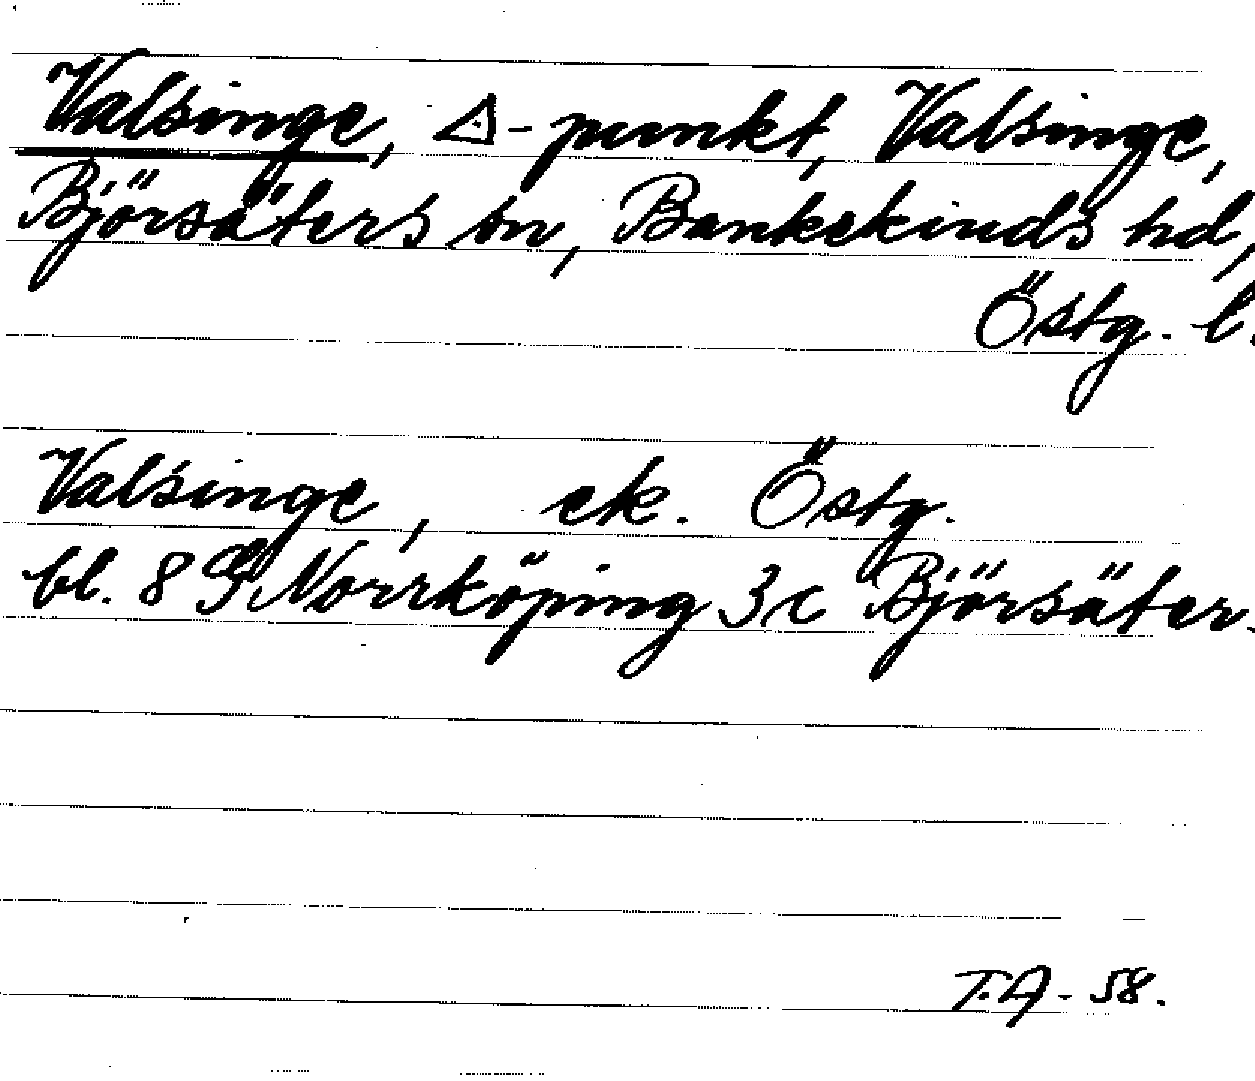 Valsinge, △-punkt, Valsinge,
Björsäters sn, Bankekinds hd,
Östg. l.
Valsinge, ek. Östg.
bl. 8 G Norrköping 3c Björsäter.
T.A - 58.